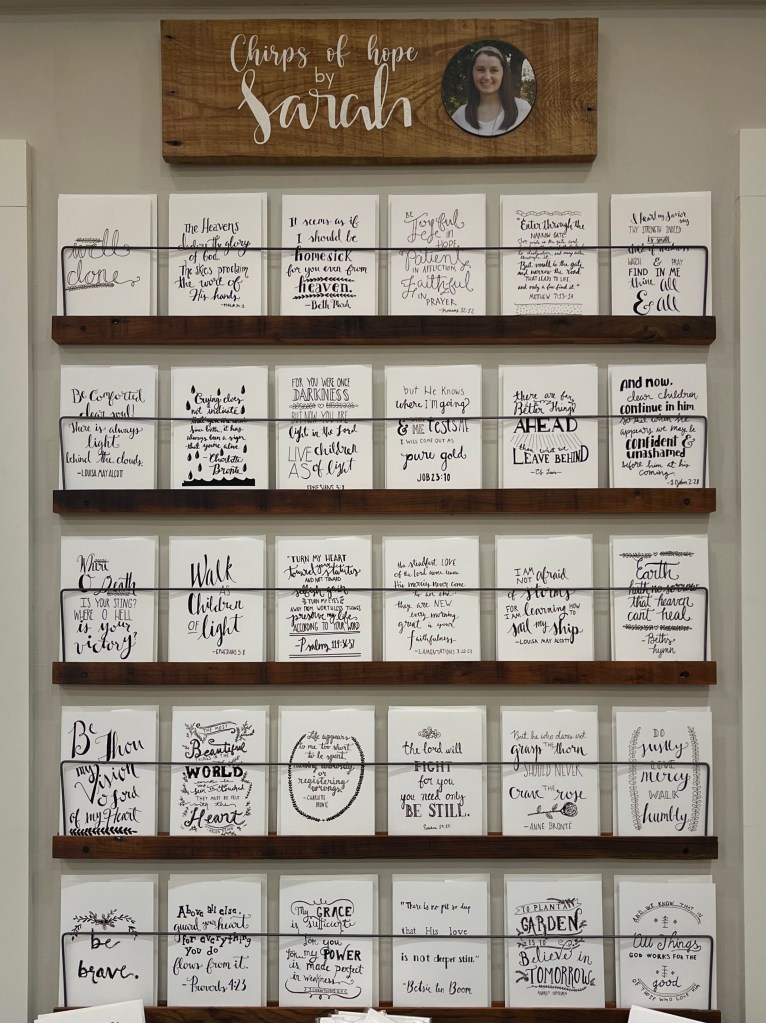 Chirps of hope
by
Sarah
well
done.
The Heavens
declare the glory
of God.
The skies proclaim
the work of
His hands.
It seems as if
I should be
homesick
for you even from
heaven.
-Beth March
BE
Joyful
IN
HOPE,
Patient
IN AFFLICTION,
Faithful
IN PRAYER
"Enter through the
NARROW GATE
But small is the gate
and narrow the road
THAT LEADS TO LIFE
and only a few find it."
MATTHEW 7:13-14
I hear my Savior say
THY STRENGTH INDEED
is small
WATCH & PRAY
FIND IN ME
thine ALL
& All
Be Comforted,
dear soul!
There is always
light
behind the clouds.
-LOUISA MAY ALCOTT
Crying does
not indicate
that you are weak.
birth, it has
always been a sign
that you're alive
-Charlotte
Brontë
FOR YOU WERE ONCE
DARKNESS
BUT NOW YOU ARE
light in the Lord
LIVE children
AS of light
EPHESIANS 5:8
but He knows
where I'm going
& WHEN HE
ME tests ME
I WILL COME OUT AS
pure gold
JOB 23:10
there are far
Better Things
AHEAD
than what we
LEAVE BEHIND
And now,
dear children
continue in him
so that when he
appears we may be
confident &
unashamed
before him at his
coming.
-1 John 2:28
Where
O Death
IS YOUR STING?
WHERE O HELL
is your
victory?
Walk
AS
Children
OF light
-EPHESIANS 5:8
"TURN MY HEART
toward your statutes
AND NOT TOWARD
selfish gain
TURN MY EYES
AWAY FROM WORTHLESS THINGS
preserve my life
ACCORDING TO YOUR WORD"
-Psalms 119:36-37
the steadfast LOVE
of the lord never ceases
His mercies never come
to an end
they are NEW
every morning
great is your
faithfulness.
-LAMENTATIONS 3:22-23
I AM
NOT afraid
of storms
FOR I AM learning HOW TO
sail my ship
-LOUISA MAY ALCOTT
Earth
hath no sorrow
that heaven
can't heal
-Beth's
hymn
Be Thou
my
Vision
O Lord
of my Heart
THE MOST
Beautiful
THINGS IN THE
WORLD
seen or touched
THEY MUST BE FELT
with the
Heart
Life appears
to me too short
to be spent
nursing animosity
or
registering
wrongs
-CHARLOTTE
BRONTE
the lord will
FIGHT
for you
you need only
BE STILL.
But he who dares not
grasp THE thorn
SHOULD NEVER
Crave THE rose
-ANNE BRONTË
DO
justly
LOVE
mercy
WALK
humbly
be
brave.
Above all else,
guard your heart
for everything
you do
flows from it.
-Proverbs 4:23
My GRACE
is sufficient
for you
for my POWER
is made perfect
in weakness
"There is no pit so deep
that His love
is not deeper still."
-Betsie ten Boom
TO PLANT A
GARDEN
IS TO
Believe in
TOMORROW
AND WE KNOW THAT IN
All Things
GOD WORKS FOR THE
good
OF THOSE WHO LOVE HIM